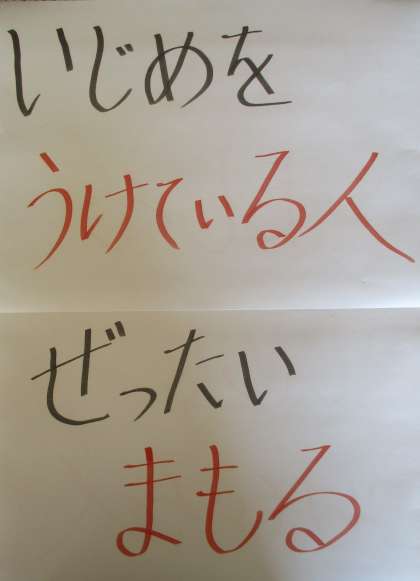 いじめを
うけている人
ぜったい
まもる